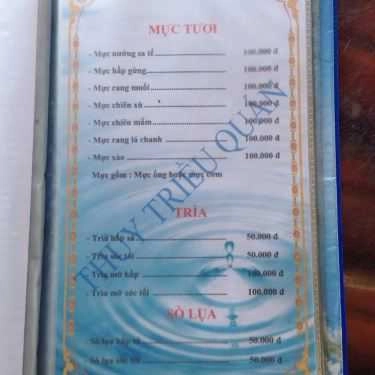 MỰC TƯƠI
- Mực nướng sa tế 100.000 đ
- Mực hấp gừng 100.000 đ
- Mực rang muối 100.000 đ
- Mực chiên xù 100.000 đ
- Mực chiên mắm 100.000 đ
- Mực rang lá chanh 100.000 đ
- Mực xào 100.000 đ
Mực gồm : Mực ống hoặc mực cơm
TRÌA
- Trìa hấp sả 50.000 đ
- Trìa tóc tỏi 50.000 đ
- Trìa mở hấp 100.000 đ
- Trìa mở tóc tỏi 100.000 đ
SÒ LỤA
- Sò lụa hấp sả 50.000 đ
- Sò lụa tóc tỏi 50.000 đ
THỦY TRIỀU QUÁN